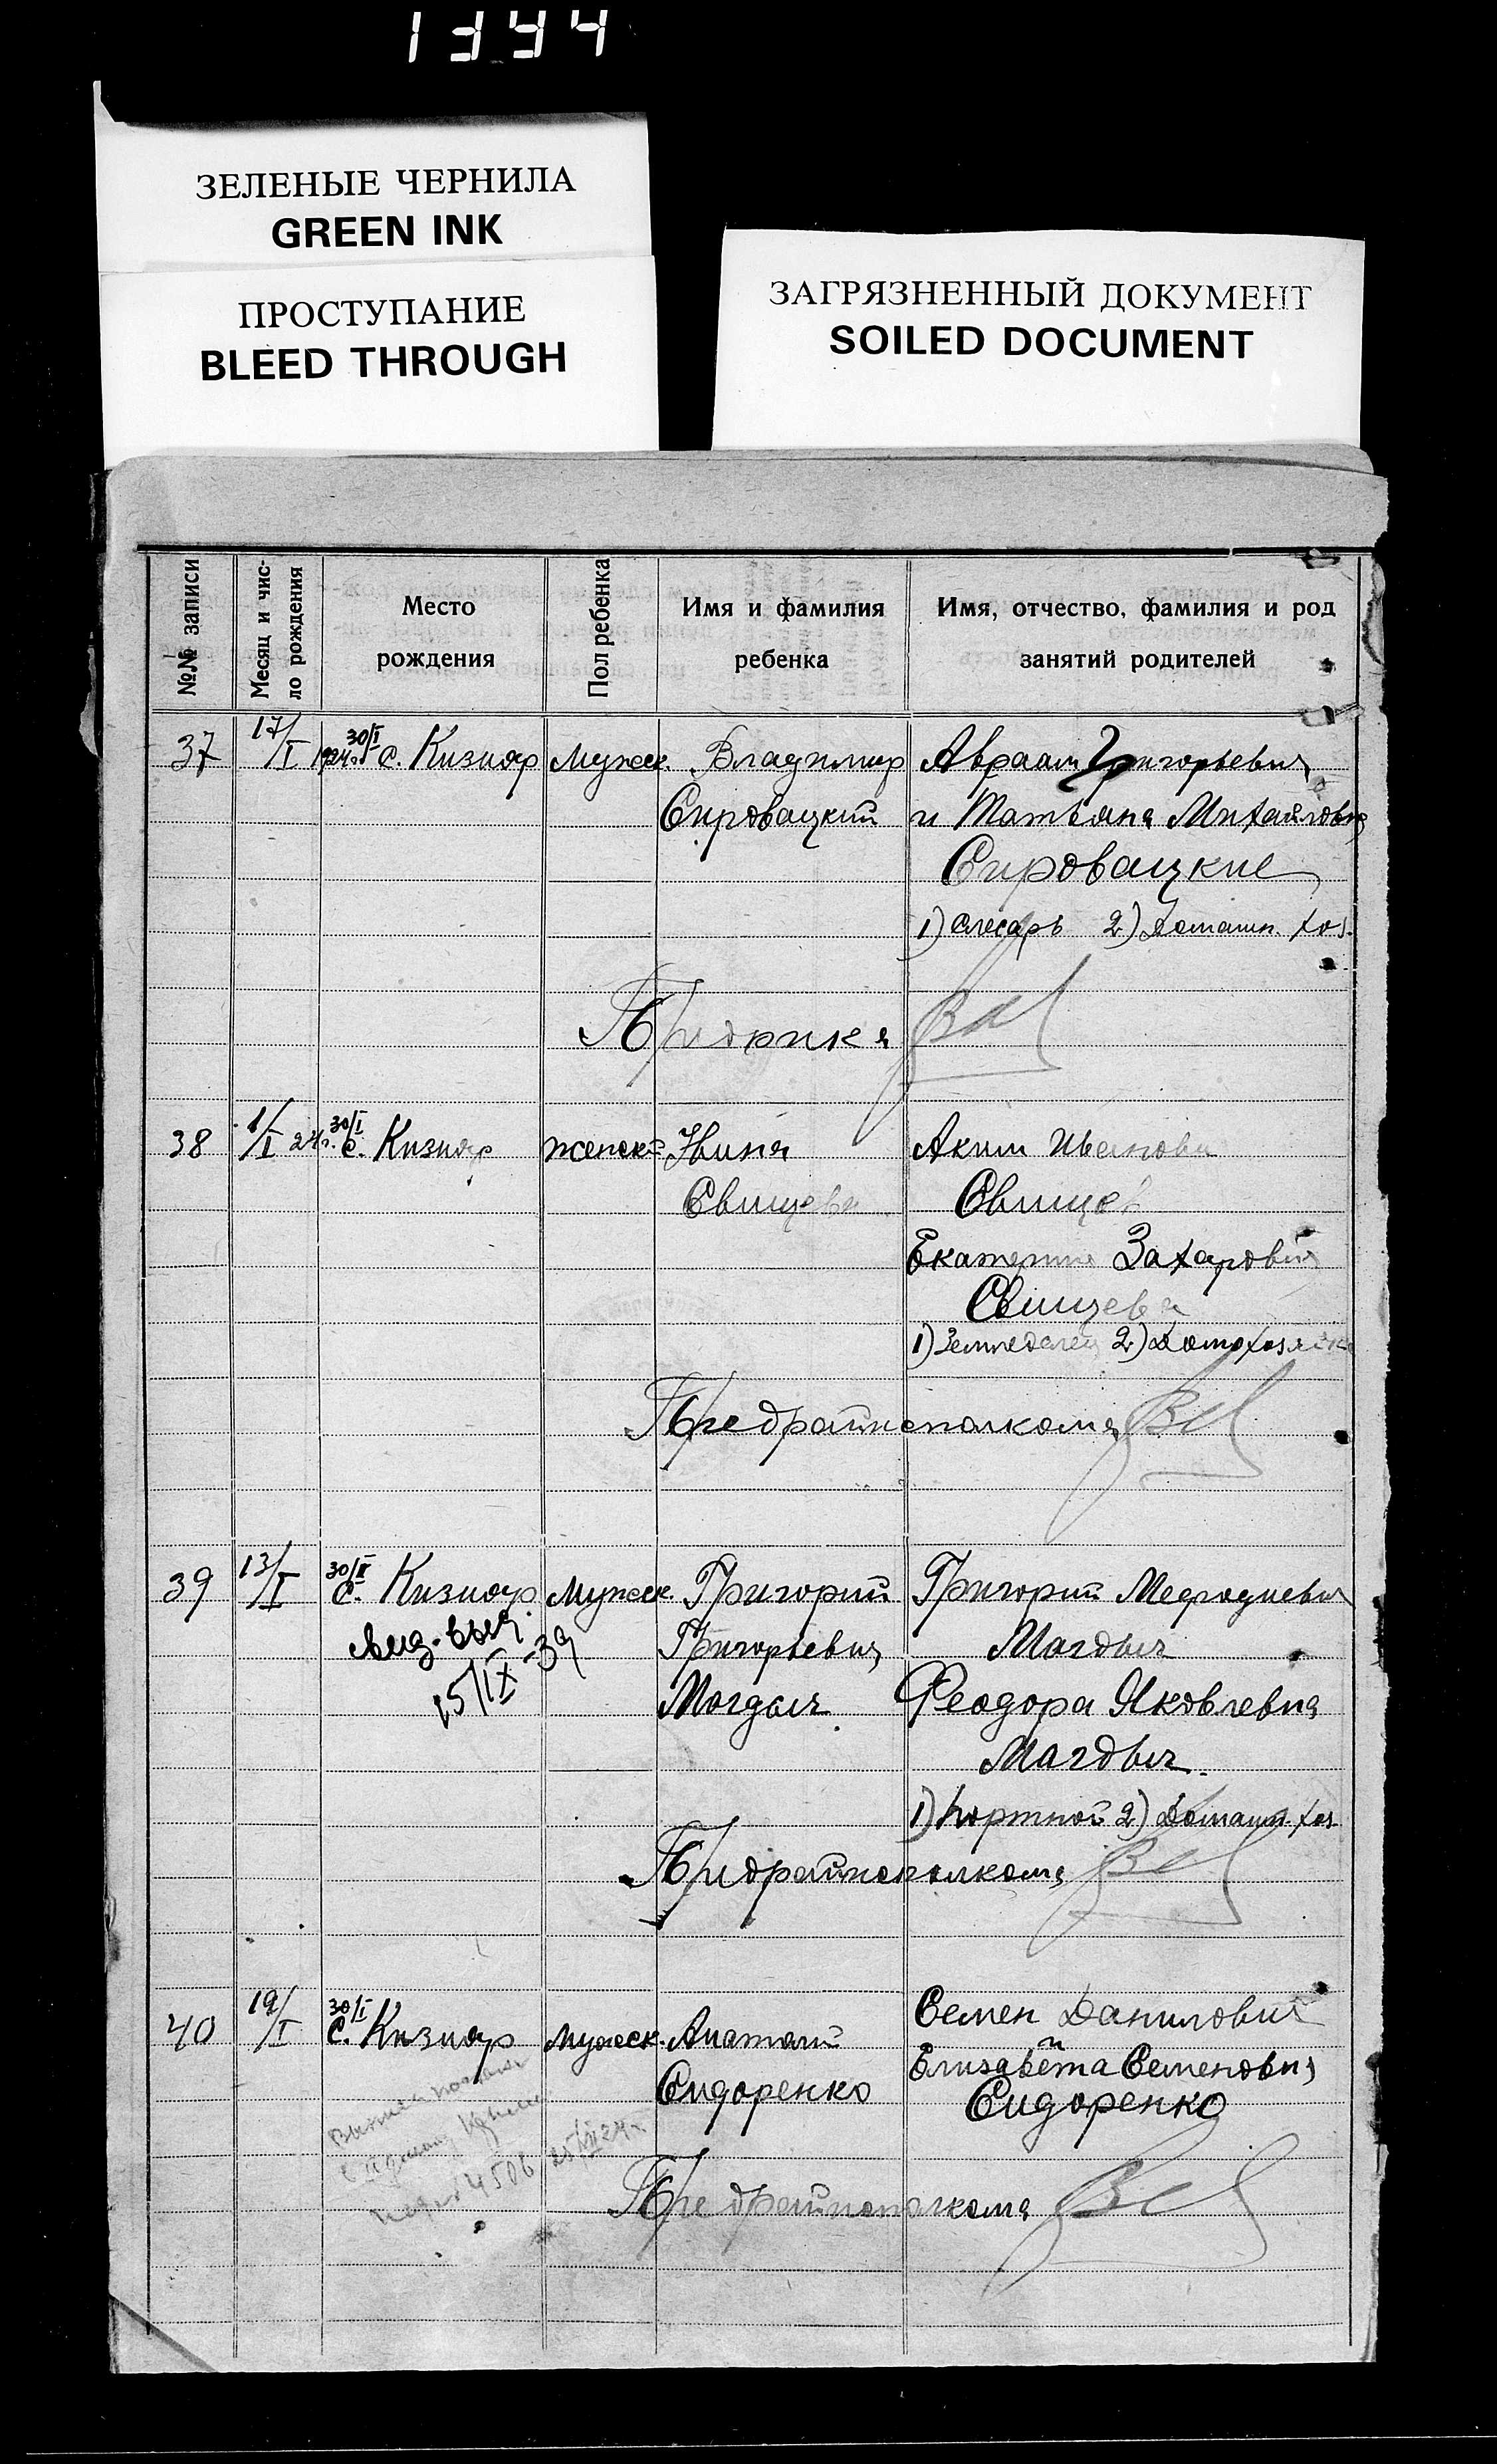 1344
ЗЕЛЕНЫЕ ЧЕРНИЛА
GREEN INK
ПРОСТУПАНИЕ
BLEED THROUGH
ЗАГРЯЗНЕННЫЙ ДОКУМЕНТ
SOILED DOCUMENT
№№ записи
Месяц и чис-
ло рождения
Место
рождения
Пол ребенка
Имя и фамилия
ребенка
Имя, отчество, фамилия и род
занятий родителей
37 17/I 1924г. 30/I с. Кизияр Мужск. Владимир Авраам Григорьевич
Сировацкий и Татьяна Михайловна
Сировацкие
1) слесарь 2) Домашн. хоз.
38 1/I 24г. 30/I с. Кизияр женск. Нина Аким Иванович
Свищева Свищев
Екатерина Захаровна
Свищева
1) Земледелец 2) Домохозяйка
Предрайисполкома
39 13/I 30/I с. Кизияр Мужск. Григорий Григорий Мефодиевич
Григорьевич Магдыч
15/IX-39
Магдыч Феодора Яковлевна
Магдыч.
1) портной 2) Домашн. хоз.
Предрайисполкома
40 19/I 30/I с. Кизияр Мужск. Анатолий Семен Данилович
Елизавета Семеновна
Сидоренко Сидоренко
4506
Предрайисполкома